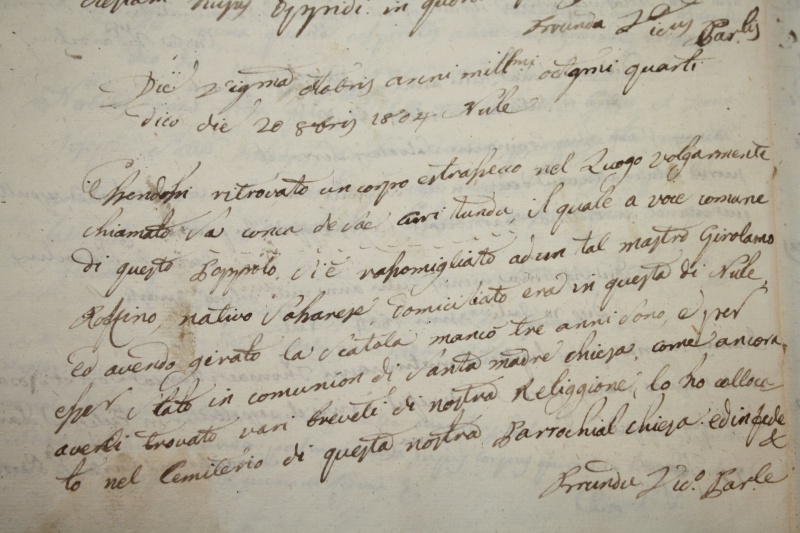 Oppidi. in quor
Farunda Vicus Par.lis
Die vigma octobris anni millmi octgmi quarti
dico die 20 8bris 1804 Nule
Essendosi ritrovato un corpo estrasecco nel Luogo volgarmente
chiamato Sa conca de Sae curi tunda, il quale a voce comune
di questo Poppolo, s'è rasomigliato ad un tal mastro Girolamo
nativo Saharese domiciliato era in questa di Nule,
ed avendo girato la scatola mancò tre anni sono, e per
esser stato in comunion di Santa madre chiesa, come ancora,
averli trovato vari breveti di nostra Religgione, lo ho colloca
to nel Cemiterio di questa nostra Parrochial chiesa. ed in fede
Farunda Vic.o Par.le